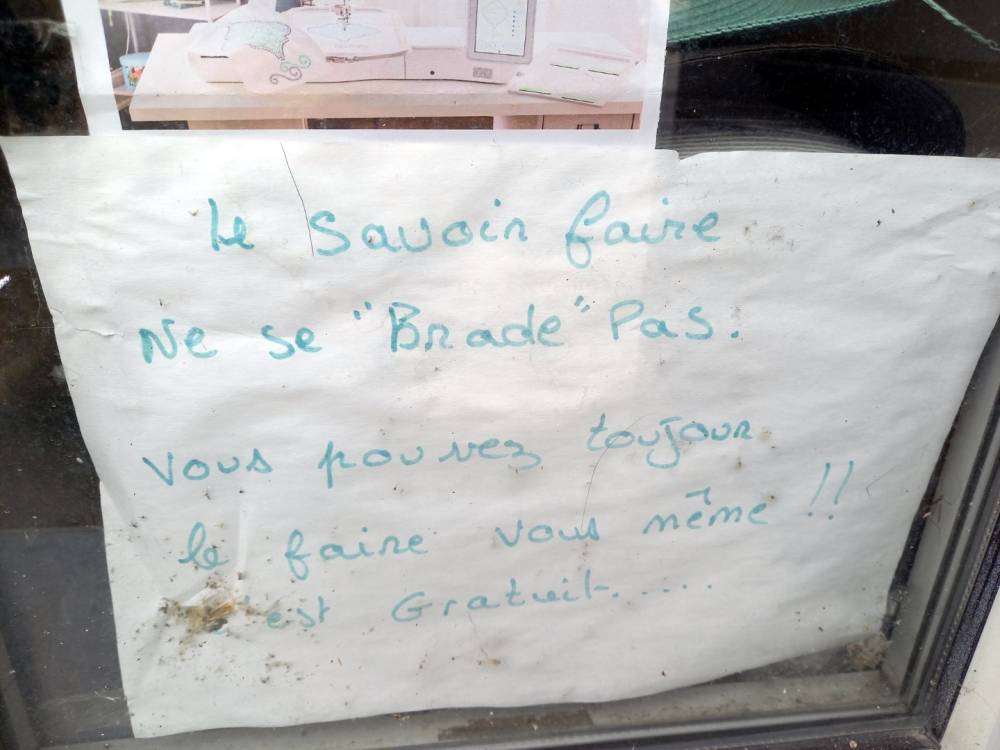 Le Savoir faire
Ne se "Brade" Pas.
Vous pouvez toujour
le faire vous même !!
C'est Gratuit.....